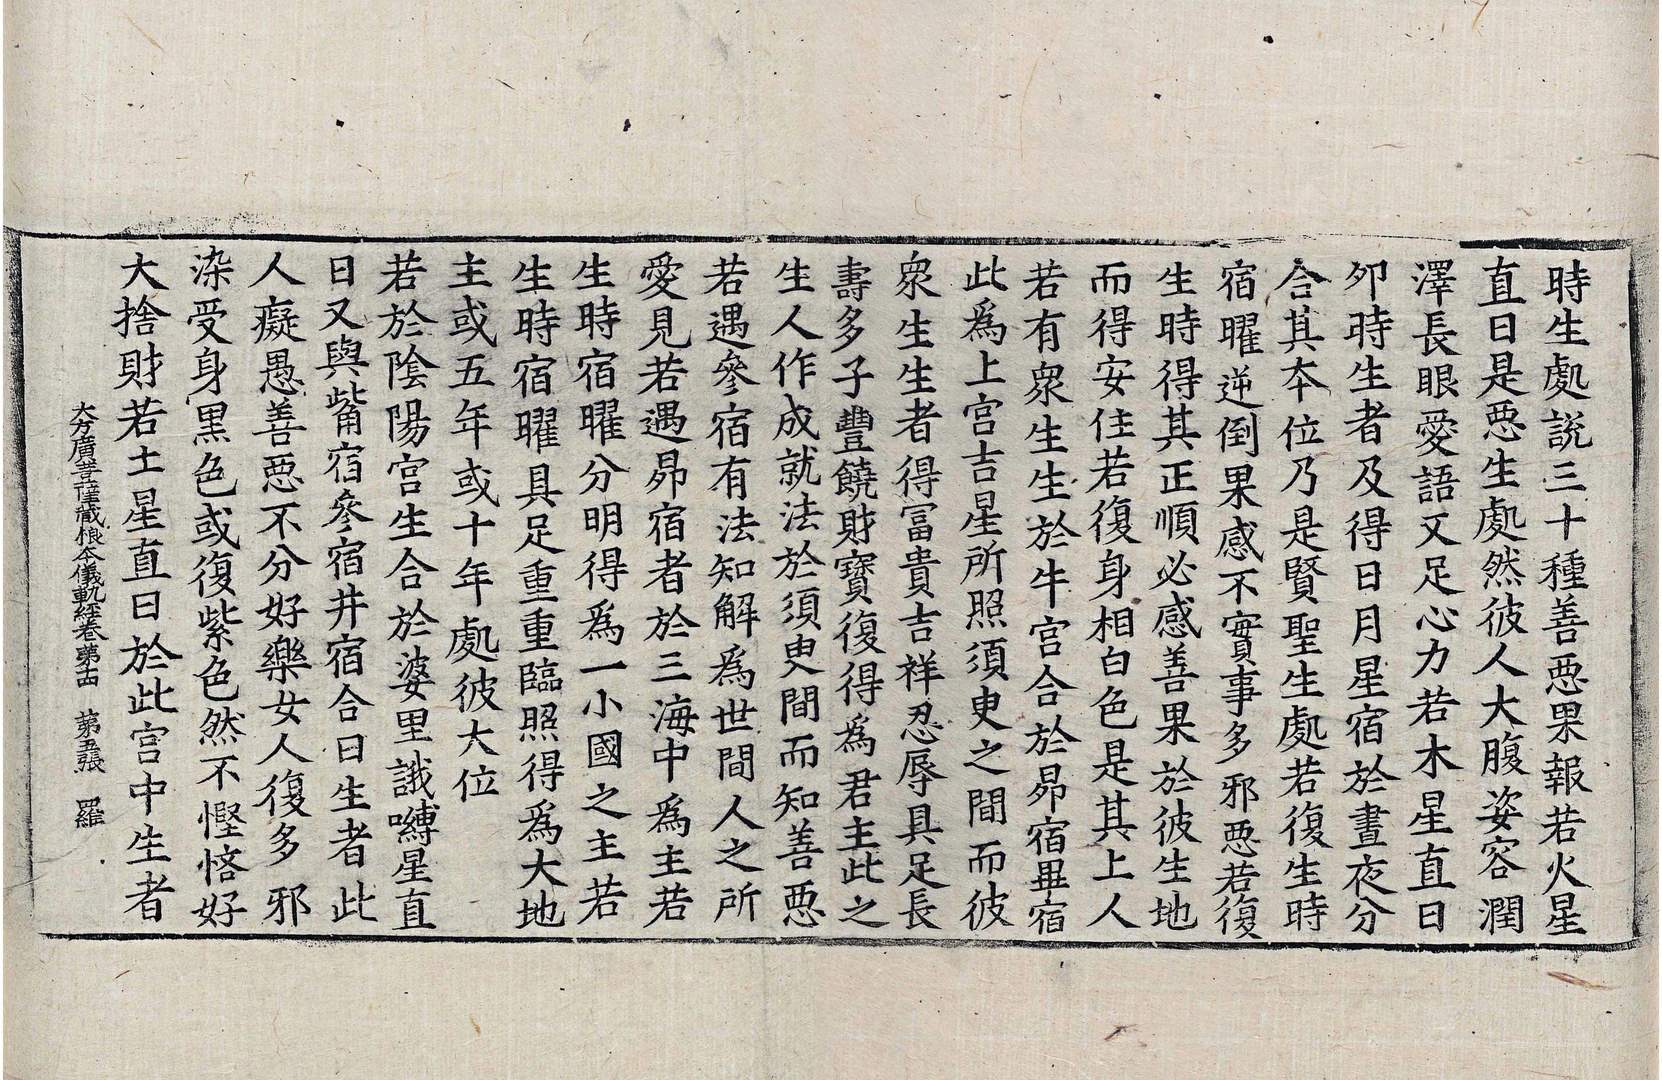 時生處說三十種善惡果報若火星
直日是惡生處然彼人大腹姿容潤
澤長眼愛語又足心力若木星直日
夘時生者及得日月星宿於晝夜分
合其本位乃是賢聖生處若復生時
宿曜逆倒果感不實事多邪惡若復
生時得其正順必感善果於彼生地
而得安住若復身相白色是其上人
若有衆生生於牛宮合於昴宿畢宿
此爲上宮吉星所照須臾之間而彼
衆生生者得冨貴吉祥忍辱具足長
壽多子豐饒財寶復得爲君主此之
生人作成就法於須臾間而知善惡
若遇參宿有法知解爲世間人之所
愛見若遇昴宿者於三海中爲主若
生時宿曜分明得爲一小國之主若
生時宿曜具足重重臨照得爲大地
主或五年或十年處彼大位
若於陰陽宮生合於婆里誐嚩星直
日又與觜宿參宿井宿合日生者此
人癡愚善惡不分好樂女人復多邪
染受身黒色或復紫色然不慳悋好
大捨財若土星直日於此宮中生者
大方廣菩薩藏根本儀軌經卷第十四 第五張 羅